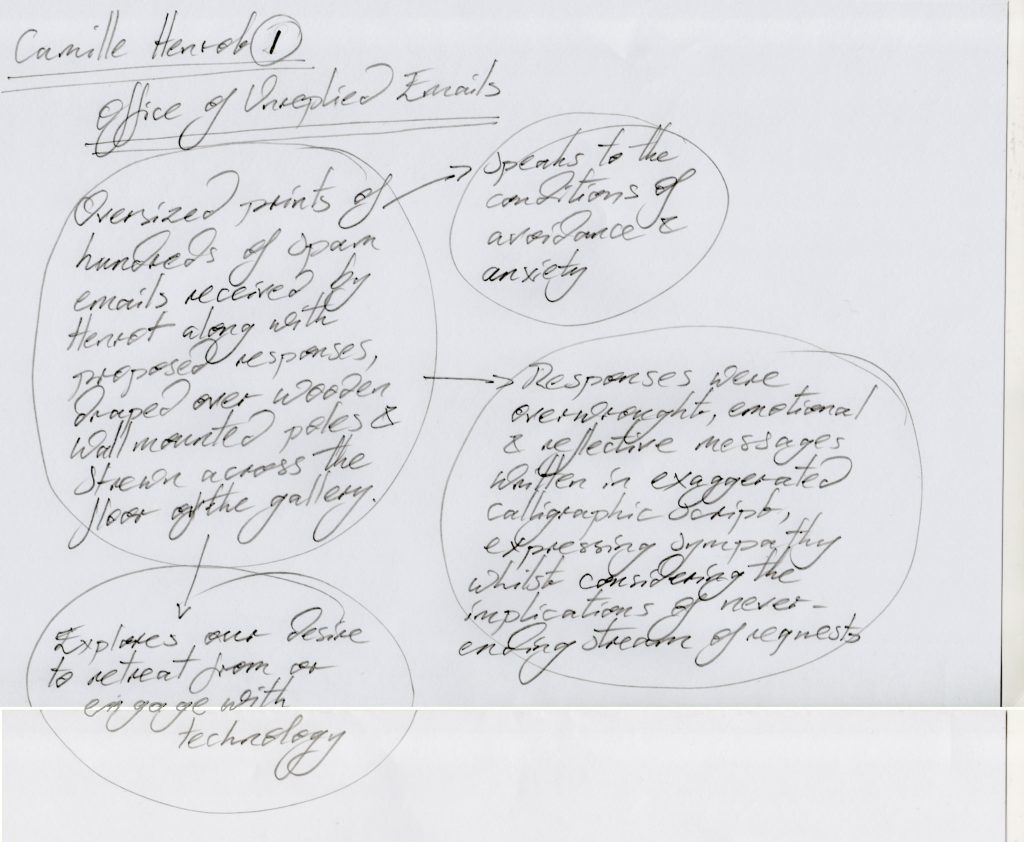 Camille Henrot 1
Office of Unreplied Emails
Oversized prints of
hundreds of spam
emails received by
Henrot along with
proposed responses,
draped over wooden
wall mounted poles &
strewn across the
floor of the gallery.
Speaks to the
conditions of
avoidance &
anxiety
Responses were
overwrought, emotional
& reflective messages
written in exaggerated
calligraphic script,
expressing sympathy
whilst considering the
implications of never-
ending stream of requests
Explores our desire
to retreat from or
engage with
technology